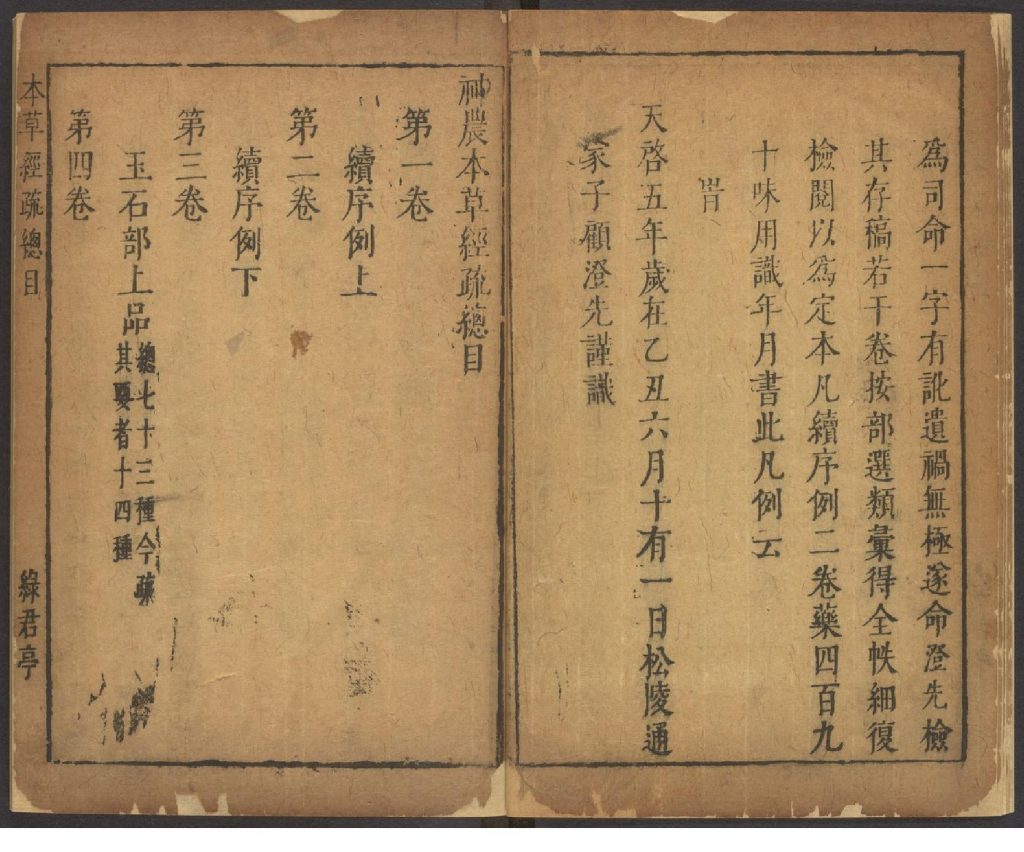 為司命一字有訛遺禍無極遂命澄先檢
其存稿若干卷按部選類彙得全帙細復
檢閱以為定本凡續序例二卷藥四百九
十味用識年月書此凡例云
旹
天啓五年歲在乙丑六月十有一日松陵通
家子顧澄先謹識
神農本草經疏總目
第一卷
續序例上
第二卷
續序例下
第三卷
玉石部上品總七十三種今疏
其要者十四種
第四卷
本草經疏總目
綠君亭